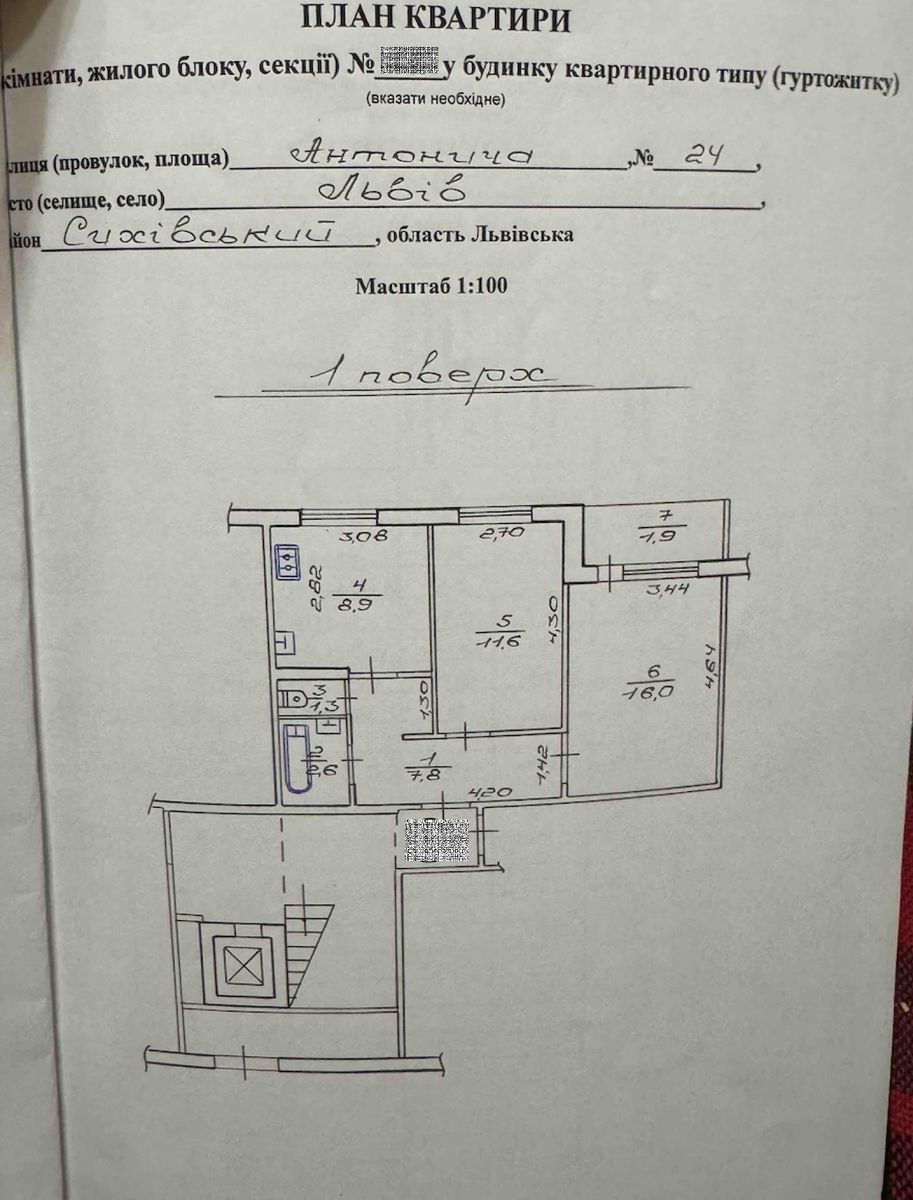 ПЛАН КВАРТИРИ
кімнати, жилого блоку, секції) № у будинку квартирного типу (гуртожитку)
(вказати необхідне)
лиця (провулок, площа) Антонича ,№ 24 ,
сто (селище, село) Львів ,
йон Сихівський , область Львівська
Масштаб 1:100
1 поверх
7
1,9
3,08
2,70
3,44
2,82
4
8,9
5
11,6
4,30
6
16,0
4,64
3
1,3
1,30
2
2,6
1
7,8
1,42
4,20